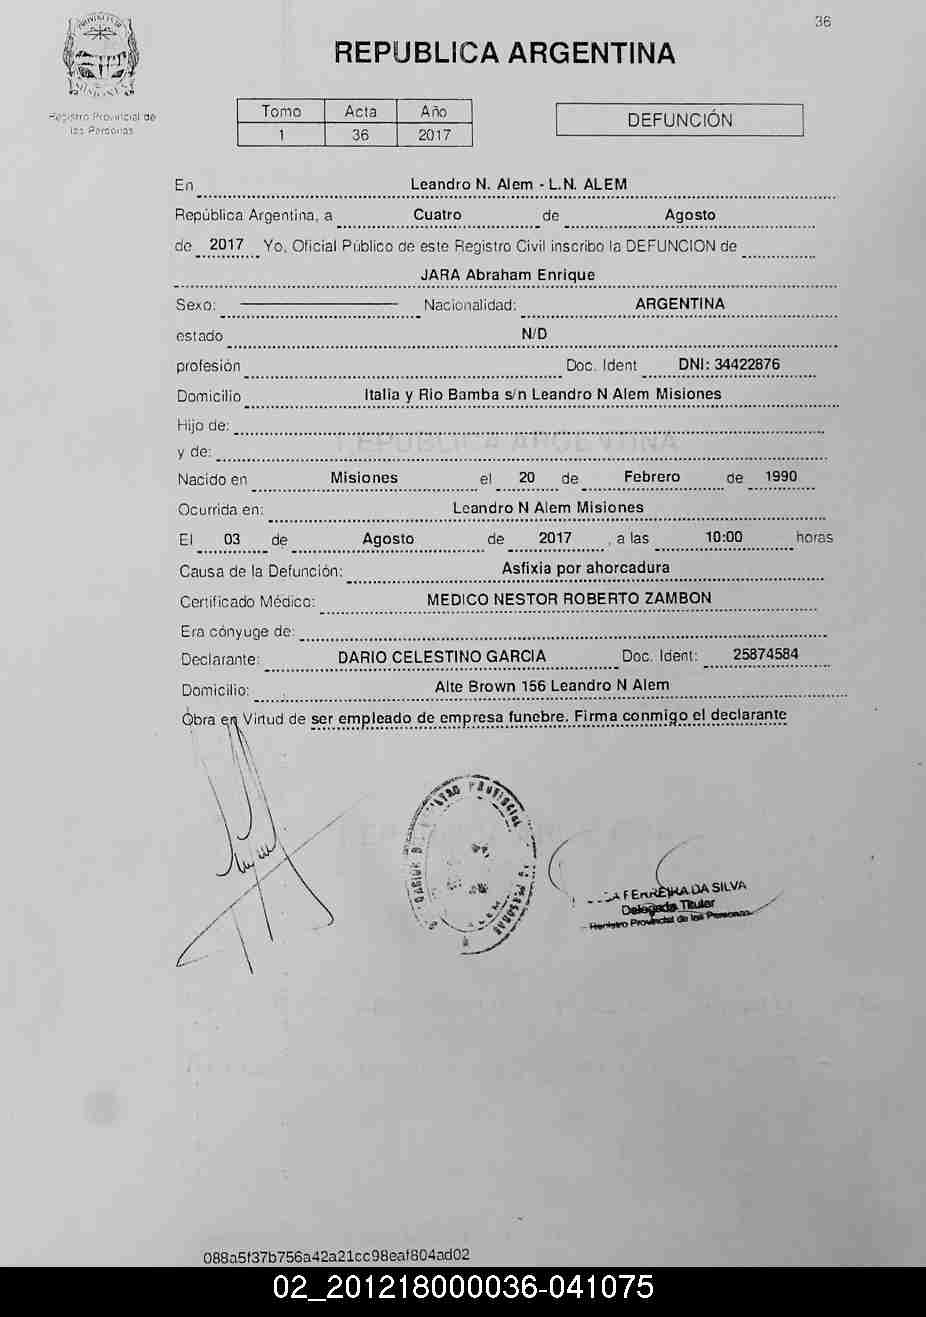 36
REPUBLICA ARGENTINA
Registro Provincial de
las Personas
Tomo Acta Año
1 36 2017
DEFUNCIÓN
En Leandro N. Alem - L.N. ALEM
República Argentina, a Cuatro de Agosto
de 2017 Yo, Oficial Público de este Registro Civil inscribo la DEFUNCION de
JARA Abraham Enrique
Sexo: Nacionalidad: ARGENTINA
estado N/D
profesión Doc. Ident DNI: 34422876
Domicilio Italia y Rio Bamba s/n Leandro N Alem Misiones
Hijo de:
y de:
Nacido en Misiones el 20 de Febrero de 1990
Ocurrida en: Leandro N Alem Misiones
El 03 de Agosto de 2017, a las 10:00 horas
Causa de la Defunción: Asfixia por ahorcadura
Certificado Médico: MEDICO NESTOR ROBERTO ZAMBON
Era cónyuge de:
Declarante: DARIO CELESTINO GARCIA Doc. Ident: 25874584
Domicilio: Alte Brown 156 Leandro N Alem
Obra en Virtud de ser empleado de empresa funebre. Firma conmigo el declarante
FERREIRA DA SILVA
Delegada Titular
Registro Provincial de las Personas
088a5f37b756a42a21cc98eaf804ad02
02_201218000036-041075